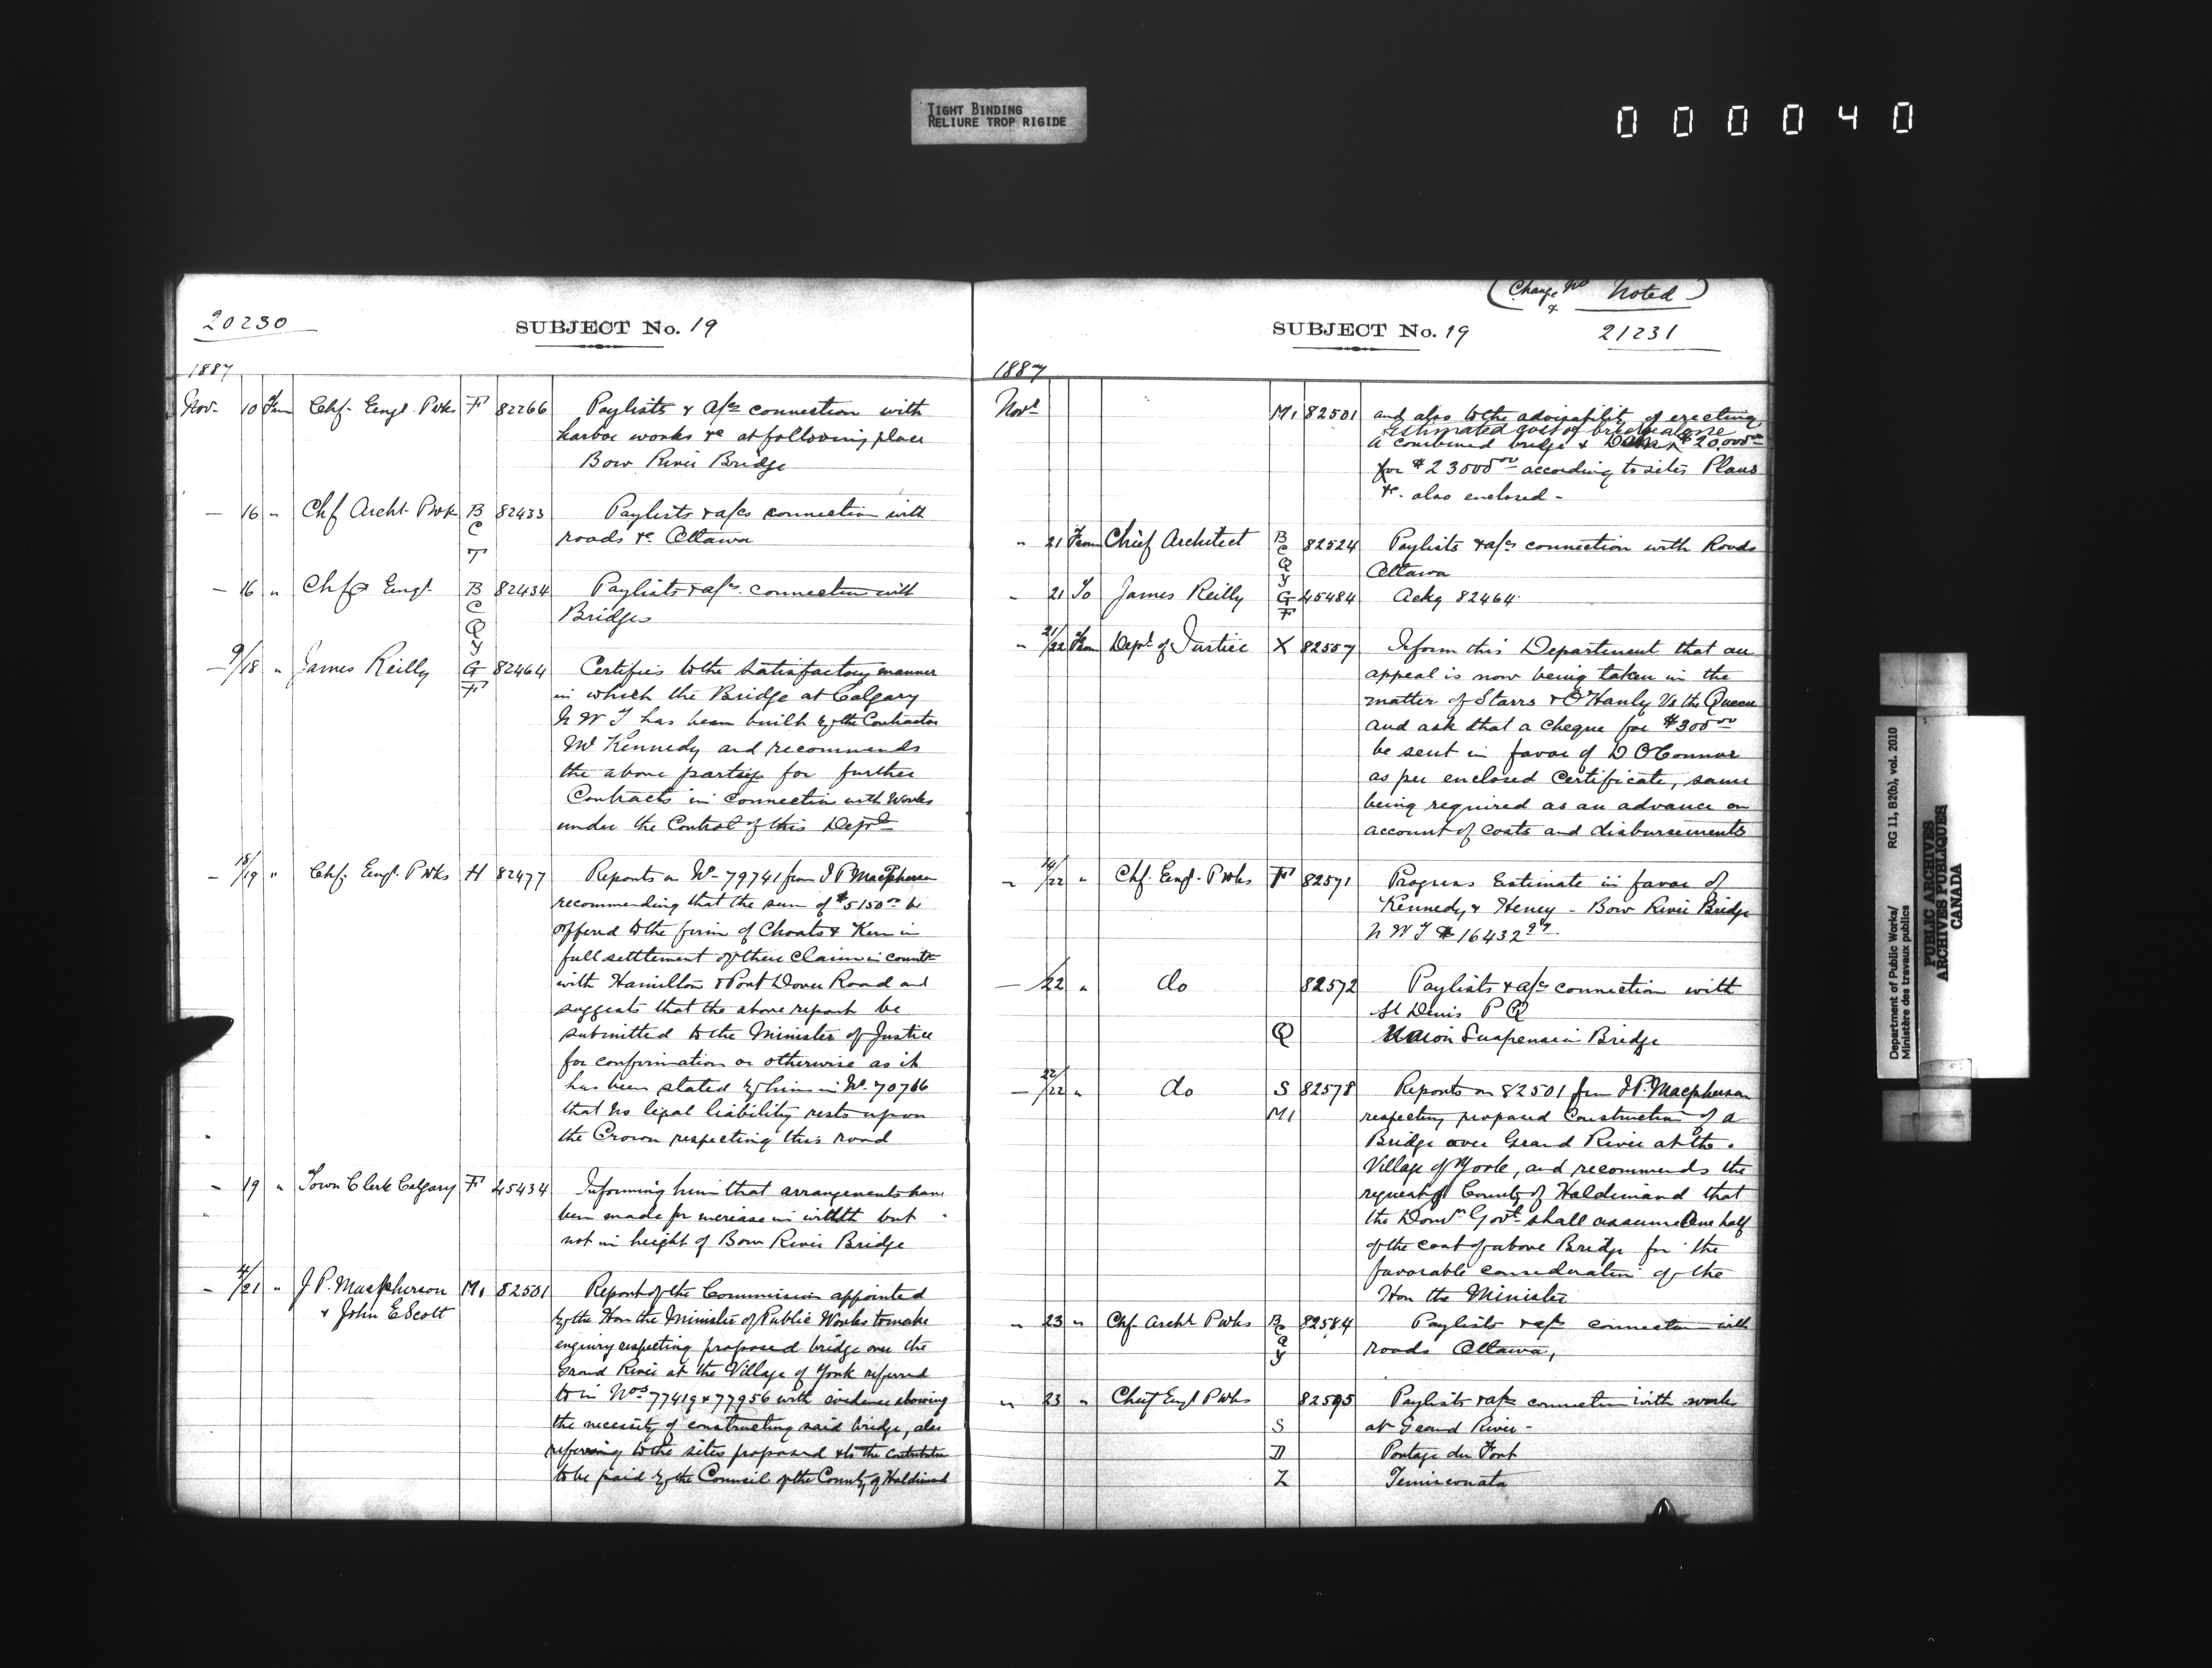 TIGHT BINDING
RELIURE TROP RIGIDE
000040
20230
SUBJECT No. 19
1887
Nov 10 Fm Chf. Engr. P Wks F 82266 Paylists & a/cs connection with
harbor works &c at following place
Bow River Bridge
— 16 " Chf Archt. P Wk B C T 82433 Paylists & a/cs connection with
roads &c. Ottawa
— 16 " Chf Engr. B C Q Y 82434 Paylists & a/cs. connection with
Bridges
— 9/18 " James Reilly G F 82464 Certifies to the satisfactory manner
in which the Bridge at Calgary
N W T has been built by the Contractor
Mr Kennedy and recommends
the above parties for further
Contracts in connection with Works
under the Control of this Dept
— 18/19 " Chf. Engr. P Wks H 82477 Reports on No. 79741 from J P MacPherson
recommending that the sum of $5150 00 be
offered to the firm of Choats & Kerr in
full settlement of their claim in connt
with Hamilton & Port Dover Road and
suggests that the above report be
submitted to the Minister of Justice
for confirmation or otherwise as it
has been stated by him in No. 70766
that no legal liability rests upon
the Crown respecting this road
— 19 " Town Clerk Calgary F 45434 Informing him that arrangements have
been made for increase in width but
not in height of Bow River Bridge
— /21 " J P. Macpherson M1 82501 Report of the Commission appointed
& John E Scott by the Hon the Minister of Public Works to make
enquiry respecting proposed bridge over the
Grand River at the Village of York referred
to in Nos 77419 & 77956 with evidence showing
the necessity of constructing said bridge, also
referring to the sites proposed & to the contribution
to be paid by the Council of the County of Haldimand
(Change No Noted)
&
SUBJECT No. 19
21231
1887
Novr M1 82501 and also to the advisability of erecting
estimated cost of bridge alone
a combined bridge & Dam $20,000 00
for $23000 00 according to sites Plans
&c. also enclosed -
" 21 From Chief Architect B C Q Y 82524 Paylists & a/cs connection with Roads
Ottawa
" 21 To James Reilly G F 45484 Ackg 82464
" 21/22 From Dept of Justice X 82557 Inform this Department that an
appeal is now being taken in the
matter of Starrs & O'Hanly Vs the Queen
and ask that a cheque for $300 00
be sent in favor of D O'Connor
as per enclosed Certificate, same
being required as an advance on
account of costs and disbursements
" 14/22 " Chf. Engr. P Wks F 82571 Progress Estimate in favor of
Kennedy & Heney - Bow River Bridge
N W T $16432 97
— /22 " do 82572 Paylists & a/cs connection with
St Denis P Q
Q Union Suspension Bridge
— 22/22 " do S M1 82578 Reports on 82501 from J P. Macpherson
respecting proposed Construction of a
Bridge over Grand River at the
Village of York, and recommends the
request of County of Haldimand that
the Domn Govt shall assume One half
of the cost of above Bridge for the
favorable consideration of the
Hon the Minister
" 23 " Chf Archt P Wks B C Q Y 82584 Paylists & a/cs connection with
roads Ottawa,
" 23 " Chief Engr P Wks 82595 Paylists & a/cs connection with works
S at Grand River -
D Portage du Fort
Z Temisconata
Department of Public Works/ RG 11, B2(b), vol. 2010
Ministère des travaux publics
PUBLIC ARCHIVES
ARCHIVES PUBLIQUES
CANADA